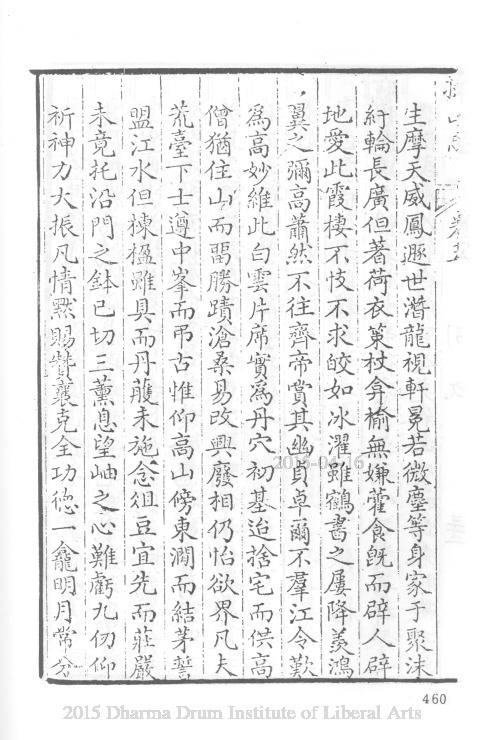 生摩天威鳳遯世潛龍視軒冕若微塵等身家于聚沫
紆輪長廣但著荷衣策杖弇榆無嫌藿食既而辟人辟
地愛此霞棲不忮不求皎如冰濯雖鶴書之屢降羨鴻
翼之彌高蕭然不往齊帝賞其幽貞卓爾不羣江令歎
為高妙維此白雲片席實為丹穴初基迨捨宅而供高
僧猶住山而畱勝蹟滄桑易改興廢相仍怡欲界凡夫
荒臺下士遵中峯而弔古惟仰高山傍東澗而結茅誓
盟江水但棟楹雖具而丹雘未施念俎豆宜先而莊嚴
未竟托沿門之鉢已切三薰息望岫之心難虧九仞仰
祈神力大振凡情默賜贊襄克全功德一龕明月常分
460
2015-04-16
2015 Dharma Drum Institute of Liberal Arts